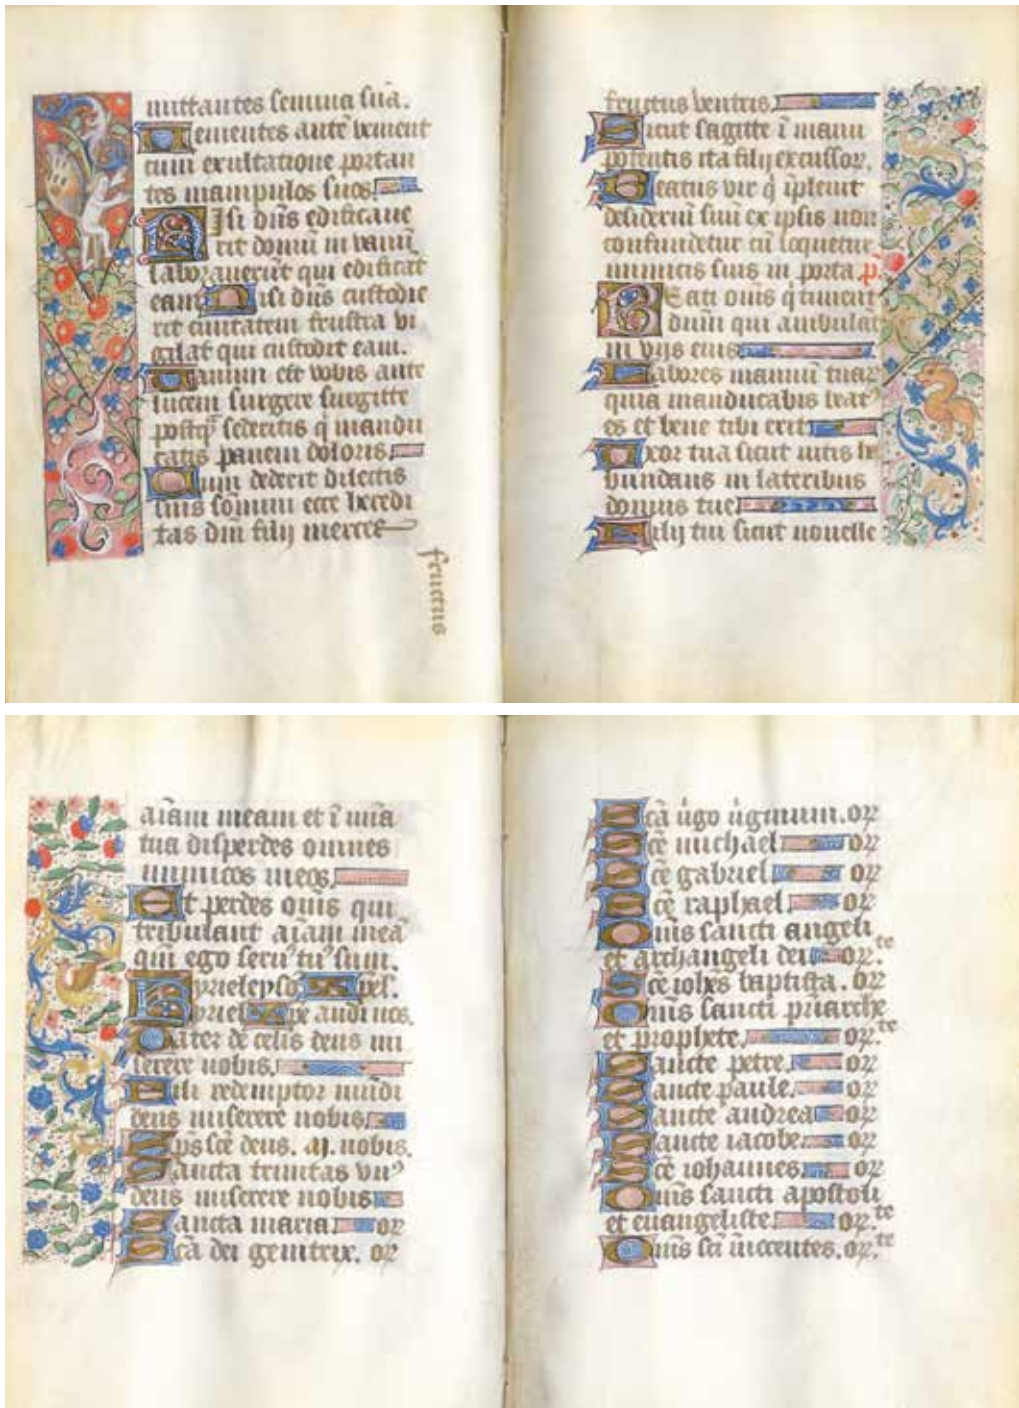 mittantes semina sua.
Venientes aute venient
cum exultatione portan
tes manipulos suos
Nisi dns edificaue
rit domu in vanu
laborauerut qui edificat
eam Nisi dns custodie
rit ciuitatem frustra vi
gilat qui custodit eam.
Vanum est vobis ante
lucem surgere surgitte
postq sederitis q mandu
catis panem doloris.
Cum dederit dilectis
suis somnu ecce heredi
tas dni filij merces
fructus
fructus ventris.
Sicut sagitte i manu
potentis ita filij excussor.
Beatus vir q ipleuit
desideriu suu ex ipsis non
confundetur cu loquetur
inimicis suis in porta. p.
Beati ois q timent
dnum qui ambulat
in vijs eius
Labores manuu tuar
quia manducabis beat
es et bene tibi erit
Uxor tua sicut vitis ha
bundans in lateribus
domus tue
Filij tui sicut nouelle
aiam meam et i mia
tua disperdes omnes
inimicos meos.
Et perdes ois qui
tribulant aiam mea
qm ego seru9 tu9 sum.
Kyrieleyso xpel.
Kyriel xpe audi nos.
Pater de celis deus mi
serere nobis.
Fili redemptor mudi
deus miserere nobis.
Sps sce deus. M. nobis.
Sancta trinitas vn9
deus miserere nobis
Sancta maria or
Sca dei genitrix. or
Sca virgo virginum. or
Sce michael or
Sce gabriel or
Sce raphael. or
Omis sancti angeli
et archangeli dei or.te
Sce iohes baptista. or
Omis sancti priarche
et prophete. or.te
Sancte petre. or
Sancte paule. or
Sancte andrea or
Sancte iacobe. or
Sce iohannes. or
Omis sancti apostoli
et euangeliste. or.te
Omis sci inocentes. or.te